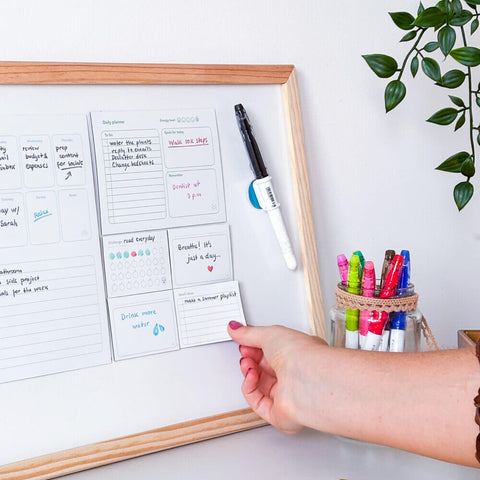 Wednesday
Thursday
Friday
review
budget &
expenses
prep
content
for socials
y w/
Sarah
Salsa
athroom
sids project
als for the work
Daily planner
Energy level
To do
water the plants
reply to emails
Declutter desk
Change bedsheets
Goal for today
Walk 10K steps
Remember
Dentist at
2 p.m
Challenge
read everyday
Breathe! It's
just a day...
Drink more
water
make a Summer playlist